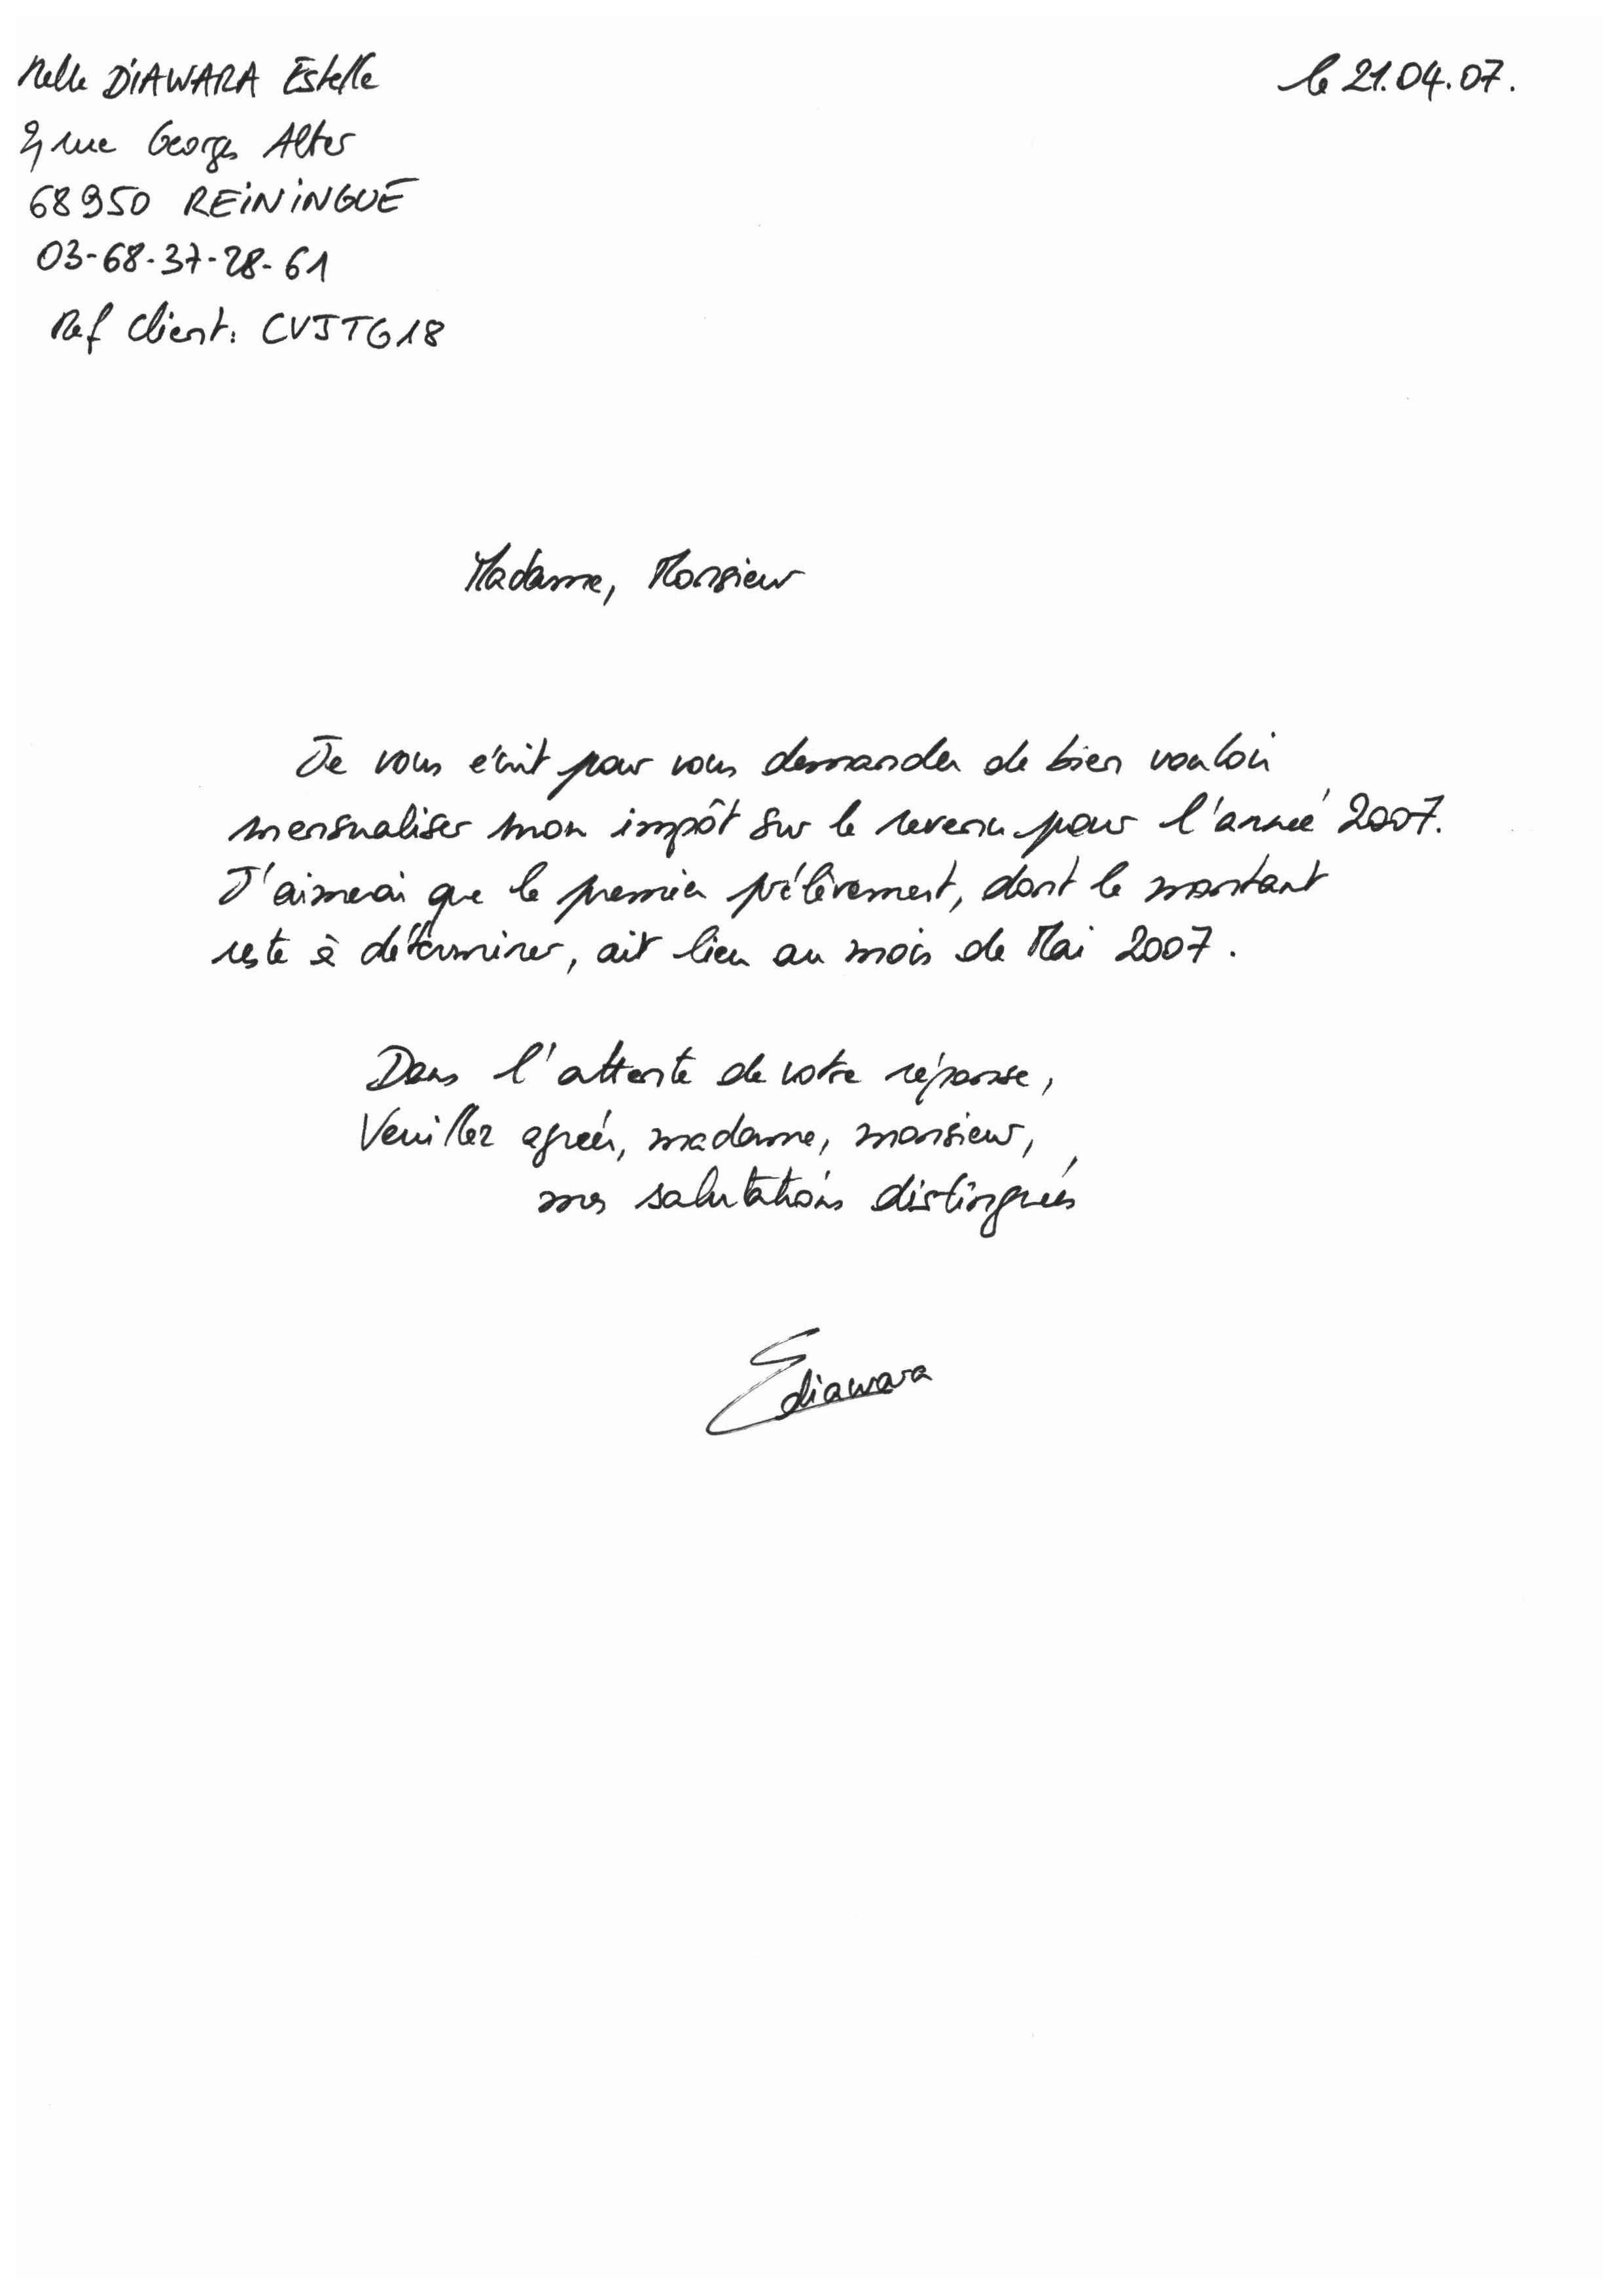 Melle DIAWARA Estelle
le 21.04.07.
2, rue Georges Alter
68950 REININGUE
03-68-37-28-61
Ref Client: CVJTG18
Madame, Monsieur
Je vous écrit pour vous demander de bien vouloir
mensualiser mon impôt sur le revenu pour l'année 2007.
J'aimerai que le premier prélèvement, dont le montant
reste à déterminer, ait lieu au mois de Mai 2007.
Dans l'attente de votre réponse,
Veuillez agréer, madame, monsieur,
mes salutations distinguées
Ediawara